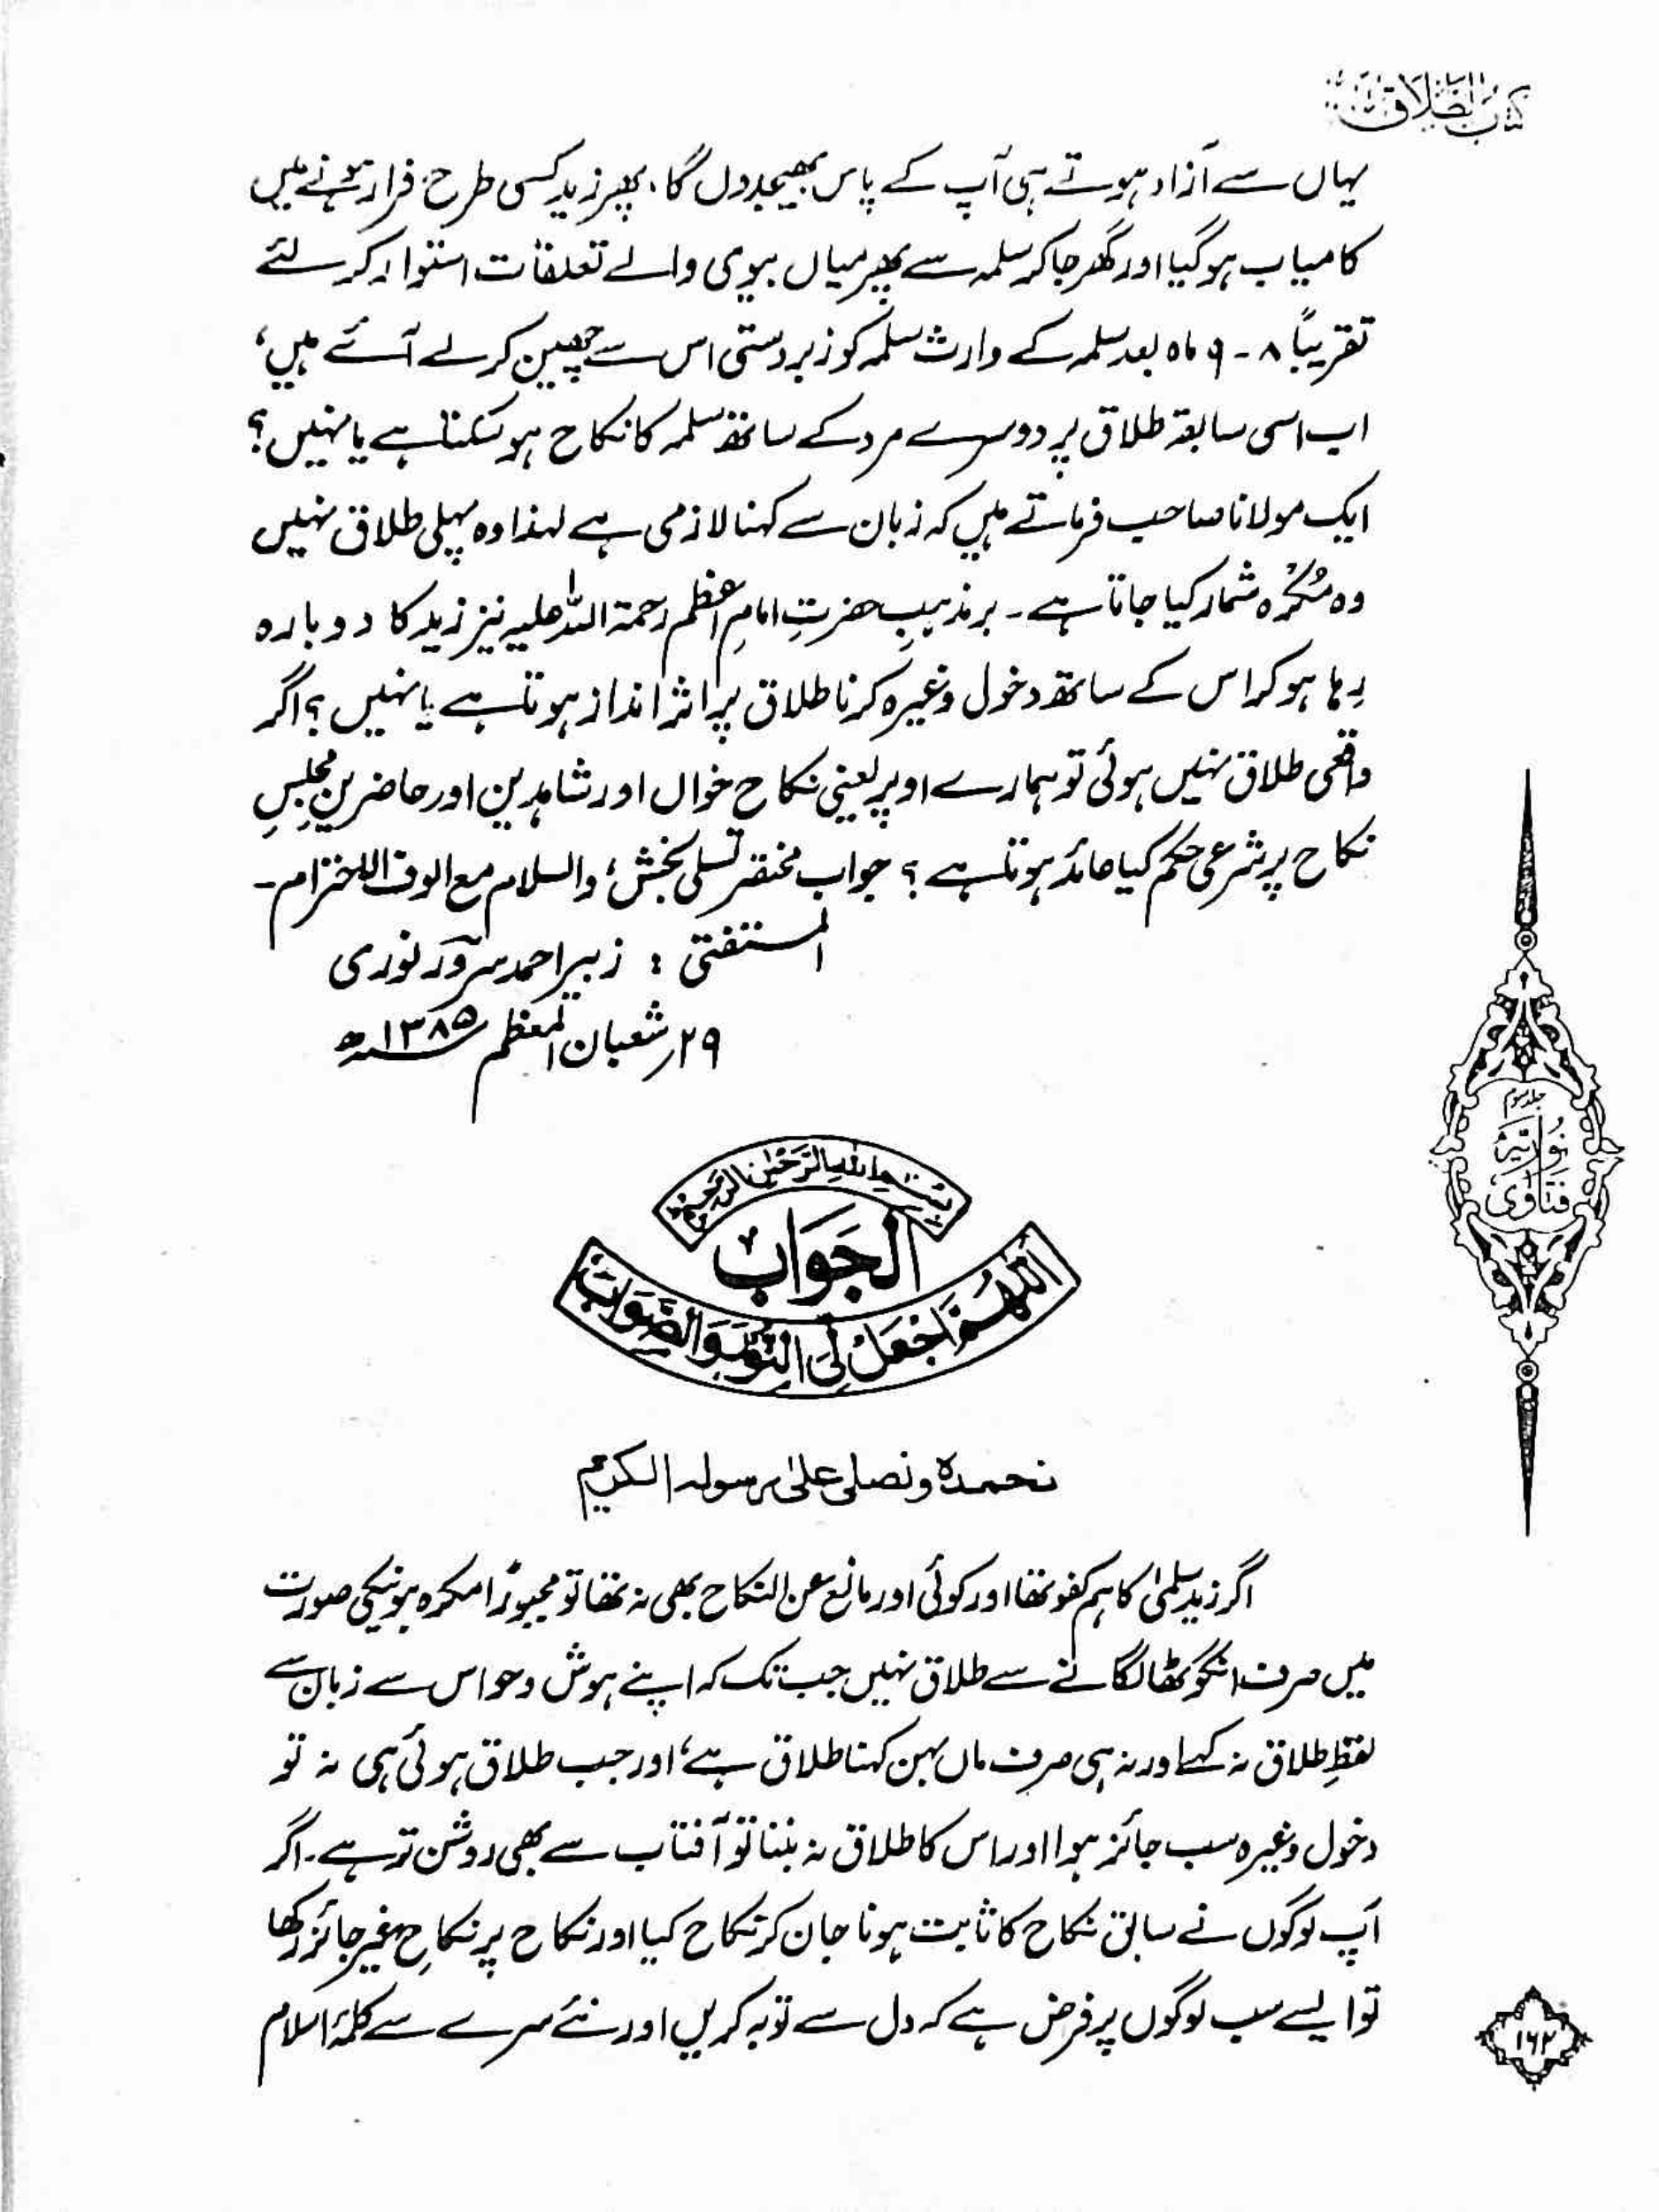 کتاب الطلاق
یہاں سے آزاد ہوتے ہی آپ کے پاس بھیجدوں گا، پھر زید کسی طرح فرار ہونے میں
کامیاب ہوگیا اور گھر جا کر سلمہ سے پھر میاں بیوی والے تعلقات استوار کر لئے
تقریباً ۸-۹ ماہ بعد سلمہ کے وارث سلمہ کو زبردستی اس سے چھین کر لے آئے ہیں،
اب اسی سابقہ طلاق پر دوسرے مرد کے ساتھ سلمہ کا نکاح ہو سکتا ہے یا نہیں؟
ایک مولانا صاحب فرماتے ہیں کہ زبان سے کہنا لازمی ہے لہذا وہ پہلی طلاق نہیں
وہ مُکْرُہ شمار کیا جاتا ہے۔ بر مذہبِ حضرتِ امامِ اعظم رحمۃ اللہ علیہ نیز زید کا دوبارہ
رہا ہو کر اس کے ساتھ دخول وغیرہ کرنا طلاق پر اثر انداز ہوتا ہے یا نہیں؟ اگر
واقعی طلاق نہیں ہوئی تو ہمارے اوپر یعنی نکاح خواں اور شاہدین اور حاضرینِ مجلسِ
نکاح پر شرعی حکم کیا عائد ہوتا ہے؟ جواب مختصر تسلی بخش، والسلام مع الوف الاحترام۔
المستفتی : زبیر احمد سرور نوری
۲۹ر شعبان المعظم ۱۳۸۵ھ
بسم اللہ الرحمٰن الرحیم
الجَوَابُ
اللّٰهُمَّ اجْعَلْ لِيَ النُّوْرَ وَالصَّوَابَ
نحمدہ ونصلی علیٰ رسولہ الکریم
اگر زید سلمیٰ کا ہم کفو تھا اور کوئی اور مانع عن النکاح بھی نہ تھا تو مجبوراً مکرہ ہونیکی صورت
میں صرف انگوٹھا لگانے سے طلاق نہیں جب تک کہ اپنے ہوش و حواس سے زبان سے
لفظِ طلاق نہ کہے اور نہ ہی صرف ماں بہن کہنا طلاق ہے، اور جب طلاق ہوئی ہی نہ تو
دخول وغیرہ سب جائز ہوا اور اس کا طلاق نہ بننا تو آفتاب سے بھی روشن تر ہے۔ اگر
آپ لوگوں نے سابق نکاح کا ثابت ہونا جان کر نکاح کیا اور نکاح پر نکاحِ غیر جائز رکھا
تو ایسے سب لوگوں پر فرض ہے کہ دل سے توبہ کریں اور نئے سرے سے کلمۂ اسلام
جلد سوم
فتاوی نوریہ
۱۶۲